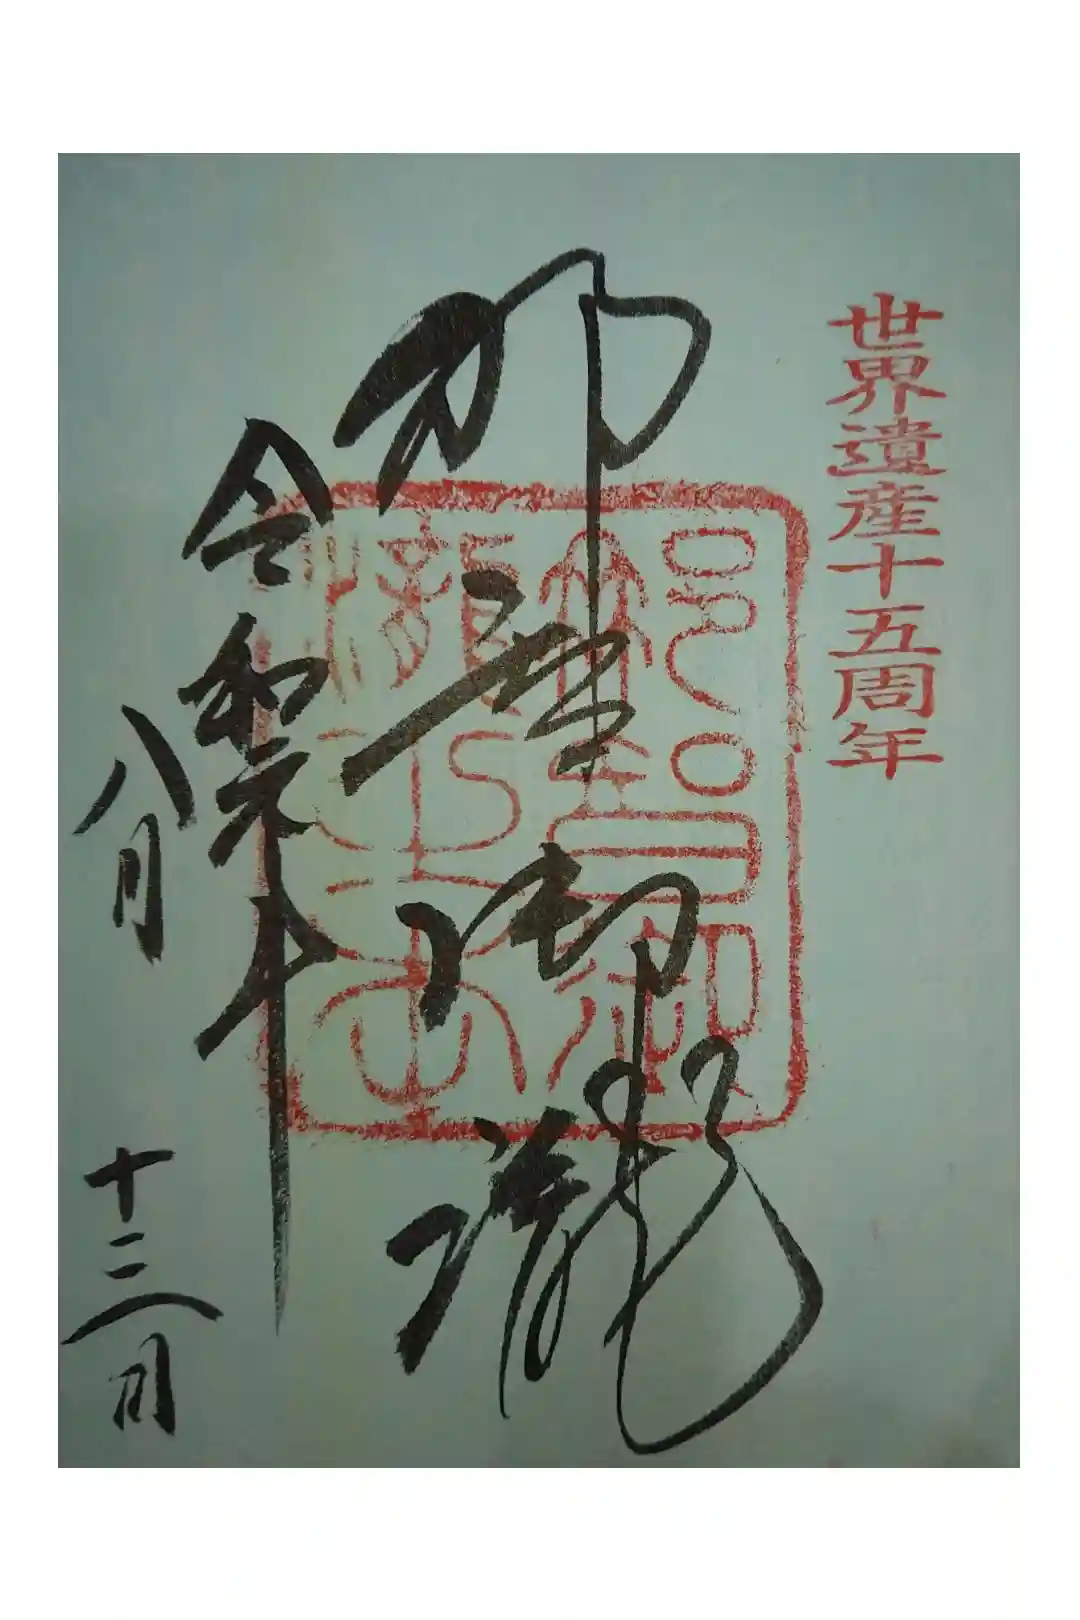 世界遺産十五周年
那智御瀧
令和元年
八月十三日